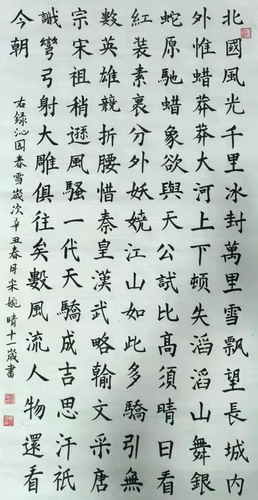 北國風光千里冰封萬里雪飄望長城內
外惟蜡莽莽大河上下頓失滔滔山舞銀
蛇原馳蜡象欲與天公試比高須晴日看
紅装素裹分外妖嬈江山如此多驕引無
數英雄競折腰惜秦皇漢武略翰文采唐
宗宋祖稍遜風騷一代天驕成吉思汗祇
識彎弓射大雕俱往矣數風流人物還看
今朝
右録沁园春雪歲次辛丑春月宋婉晴十一歲書